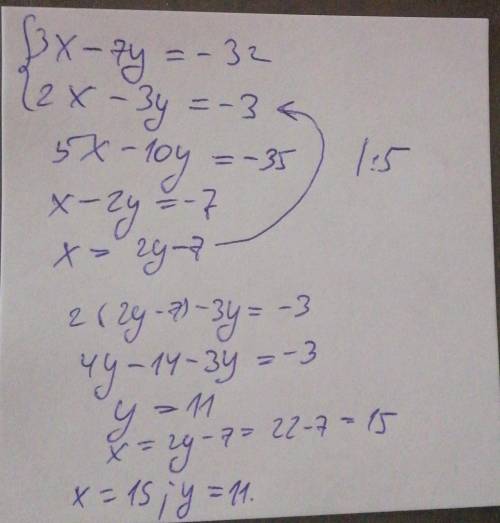 {3x - 7y = - 32
{2x - 3y = -3
5x - 10y = -35 |:5
x - 2y = -7
x = 2y - 7
2(2y - 7) - 3y = -3
4y - 14 - 3y = -3
y = 11
x = 2y - 7 = 22 - 7 = 15
x = 15; y = 11.